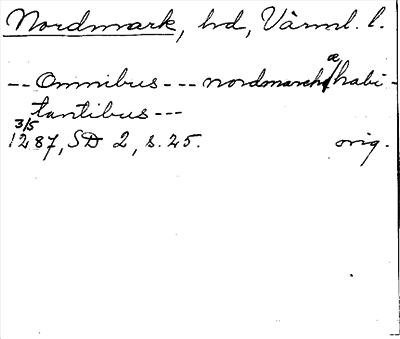 Nordmark, hd, Värml. l.
-- Omnibus --- nordmarch a habi-
tantibus ---
3/5
1287, SD 2, s. 25.   orig.